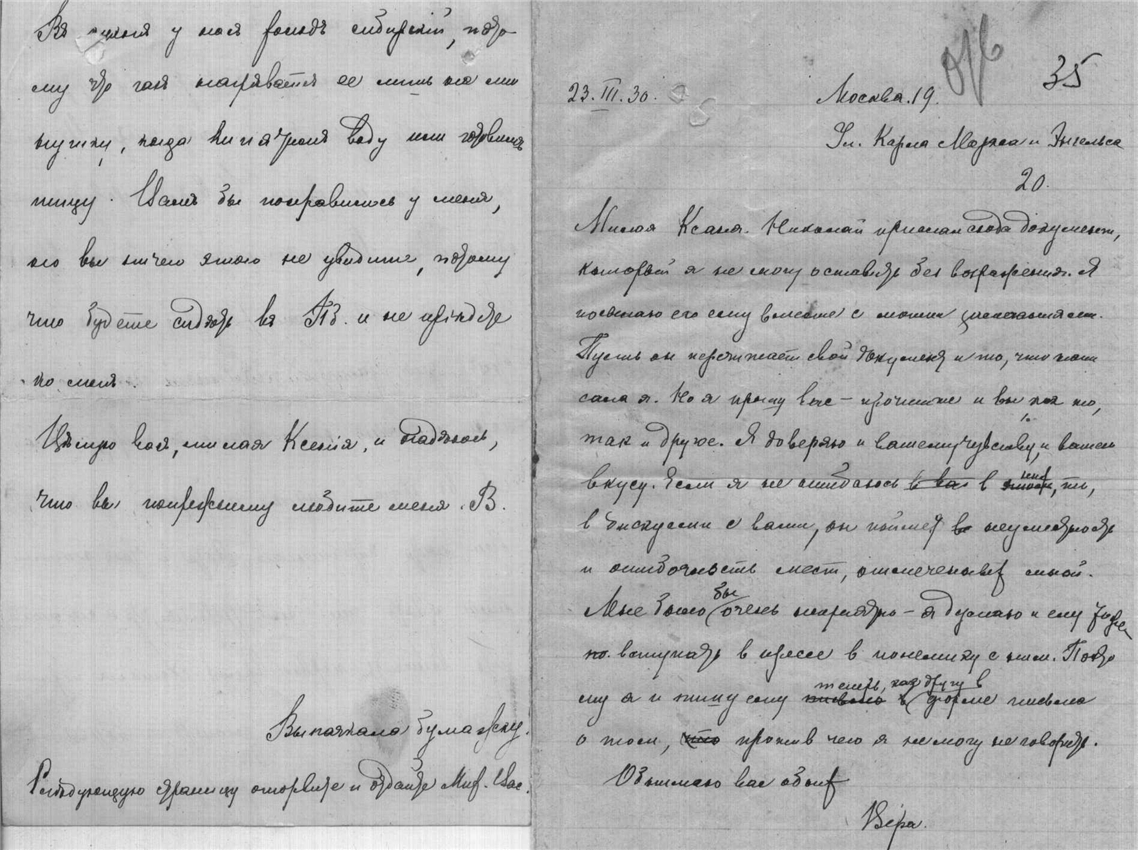 у меня холодъ сибирскій, пото-
му что нагрѣвается ее лишь на ми
нутку, когда кипятили воду или готовили
пищу. Вамъ бы понравилось у меня,
но вы ничего этого не увидите, потому
что будете сидѣть въ и не пріѣдете
ко мнѣ.
Цѣлую васъ, милая Ксенія, и надѣюсь,
что вы попрежнему любите меня. В.
Выпачкала бумажку.
Слѣдующую страницу оторвите и отдайте Мих. Вас.
016
35
23.III.30.
Москва.19.
Ул. Карла Маркса и Энгельса
20.
Милая Ксана. Николай прислал сюда документ,
который я не могу оставить без возражения. Я
посылаю его ему вместе с моими замечаниями.
Пусть он перечитает свой документ и то, что напи
сала я. Но я прошу вас – прочтите и вы как то,
так и другое. Я доверяю и вашему чувству, и вашему
вкусу. Если я не ошибаюсь в в этом, то,
в дискуссии с вами, он поймет неуместность
и ошибочность мест, отмеченных мной.
Мне было бы очень неприятно – я думаю и ему тоже
вступать в прессе в полемику с ним. Поэто
му я и пишу ему теперь, как другу в форме письма
о том, против чего я не могу не говорить.
Обнимаю вас обоих
Вера.